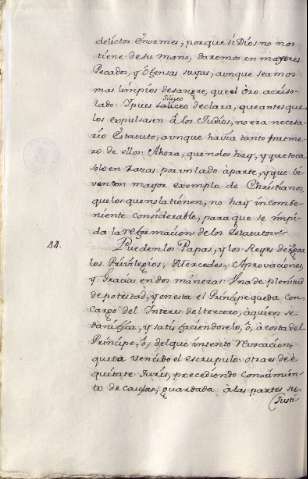 delictos Enormes; porque si Dios no nos
tiene de su mano, daremos en mayores
Pecados, y Ofensas suyas, aunque seamos
mas limpios de sangre, que el oro acriso-
lado. Y pues declara, que antes que
los expulsasen á los Judios, no era necesa-
rio Estatuto, aunque havia tanto nume-
ro de ellos: Ahora, que no los hay, y que toca-
ble en Razas por un lado aparte, y que vi-
ven con mayor exemplo de Christianos
que los que no la tienen, no hay inconbe-
niente considerable, para que se impi-
da la reformacion de los Estatutos.
44. Pueden los Papas, y los Reyes
los Privilegios, Mercedes, Aprovaciones,
y Gracias en dos maneras: Una de plenitud
de potestad, y en esta el Principe queda con
cargo del Interes del tercero, á quien se
y satisfaciendole, ó, á costa del
Principe, ó, del que intentó
queda vencido el escrupulo: otra es de
precediendo Conocimien-
to de causa, guardada á las partes su
Justi-